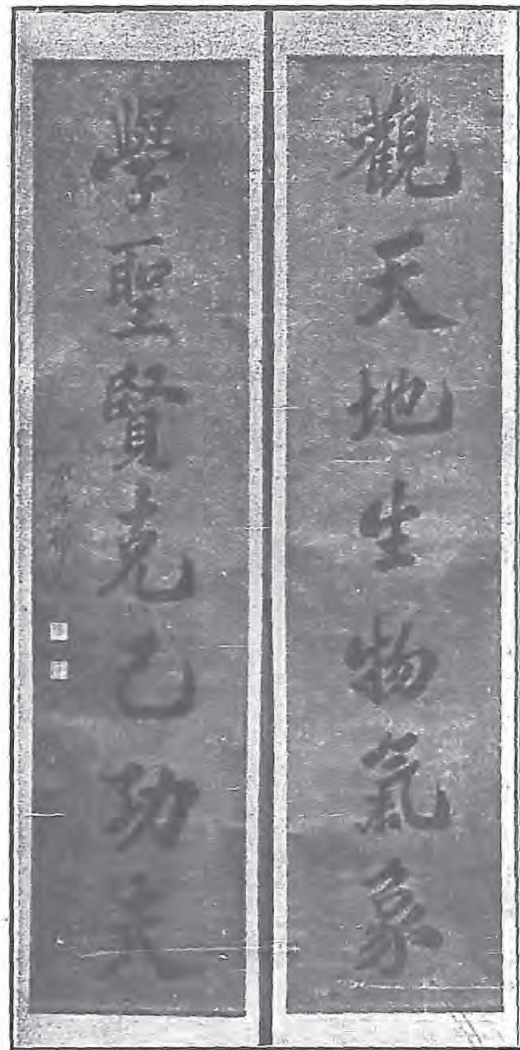 觀天地生物氣象
學聖賢克己功夫